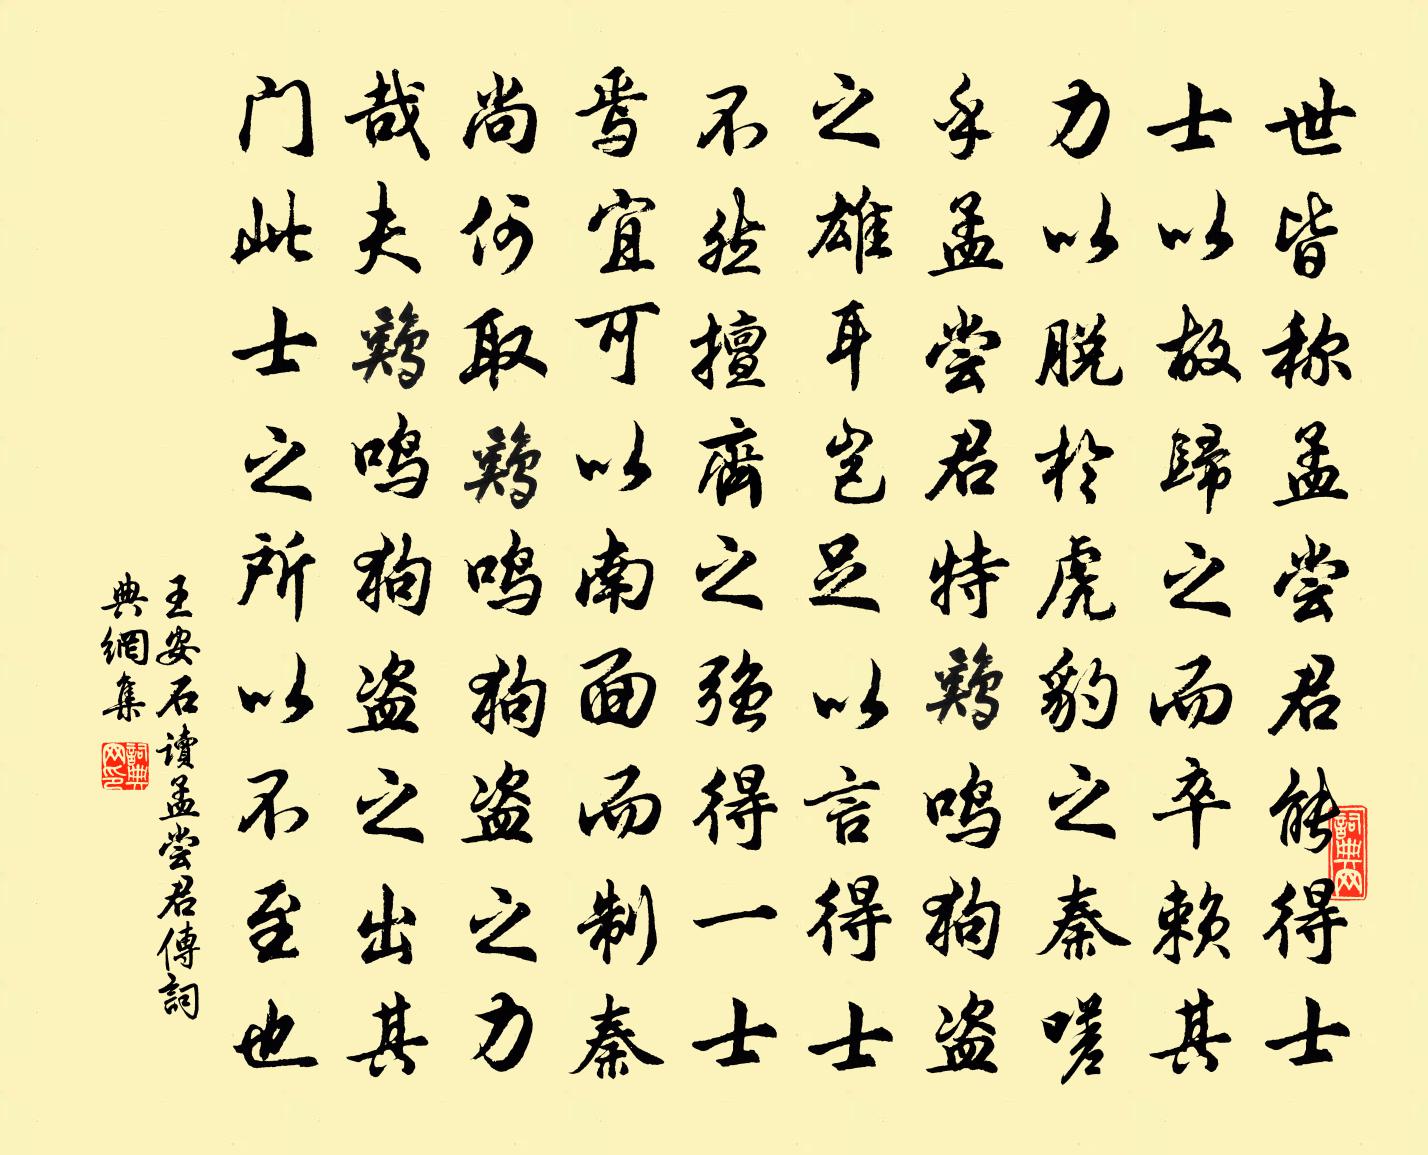 世皆称孟尝君能得士
士以故歸之而卒赖其
力以脱於虎豹之秦嗟
乎孟尝君特鷄鸣狗盗
之雄耳岂足以言得士
不然擅齊之强得一士
焉宜可以南面而制秦
尚何取鷄鸣狗盗之力
哉夫鷄鸣狗盗之出其
门此士之所以不至也
王安石讀孟尝君傳詞
典網集
詞典网
詞典网印